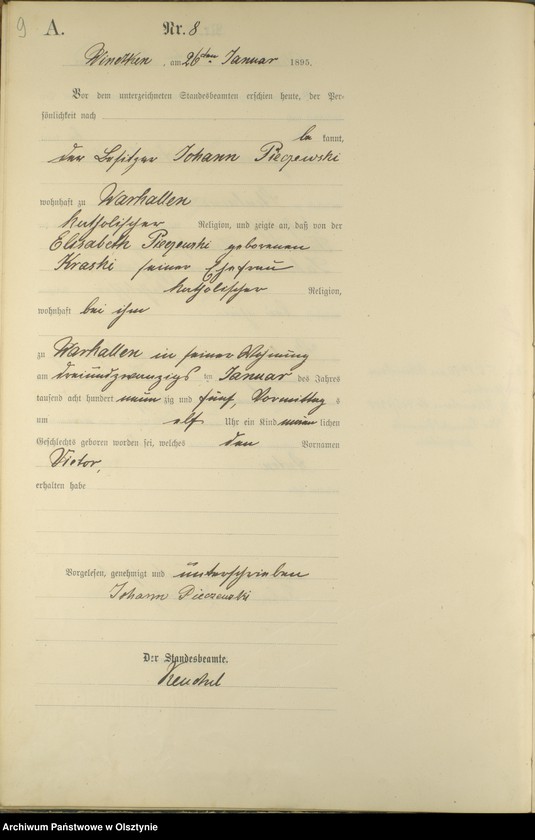 9 A. Nr. 8
am 26ten Januar 1895.
Vor dem unterzeichneten Standesbeamten erschien heute, der Per-
sönlichkeit nach
be kannt,
der Besitzer Johann Pieczewski
wohnhaft zu Warkallen
katholischer Religion, und zeigte an, daß von der
Elisabeth Pieczewski geborenen
Kraski seiner Ehefrau
katholischer Religion,
wohnhaft bei ihm
zu Warkallen in seiner Wohnung
am dreiundzwanzigs ten Januar des Jahres
tausend acht hundert neun zig und fünf, Vormittag s
um elf Uhr ein Kind männ lichen
Geschlechts geboren worden sei, welches den Vornamen
Victor,
erhalten habe
Vorgelesen, genehmigt und unterschrieben
Johann Pieczewski
Der Standesbeamte.
Archiwum Państwowe w Olsztynie